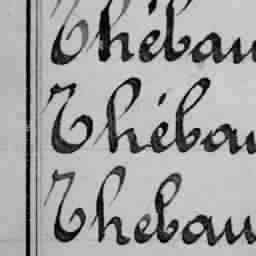 Thébau
Thébau
Thebau